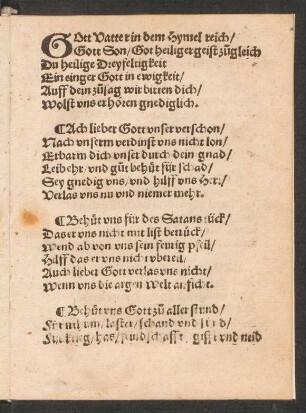 GOtt Vatter in dem Hymel reich/
Gott Son/Got heiliger geist zůgleich
Du heilige Dreyfeltigkeit
Ein einger Gott in ewigkeit/
Auff dein zůsag wir bitten dich/
Wolst vns erhören gnediglich.
¶ Ach lieber Gott vnser verschon/
Nach vnserm verdinst vns nicht lon/
Erbarm dich vnser durch dein gnad/
Leib ehr/vnd gůt behüt für schad/
Sey gnedig vns/vnd hilff vns Herr/
Verlas vns nu vnd niemer mehr.
¶ Behüt vns für des Satans tück/
Das er vns nicht mit list berück/
Wend ab von vns sein feurig pfeil/
Hilff das er vns nicht vbereil/
Auch lieber Gott verlas vns nicht/
Wenn vns die argen Welt anficht.
¶ Behüt vns Gott zů aller stund/
laster/schand vnd
has/ gifft vnd neid